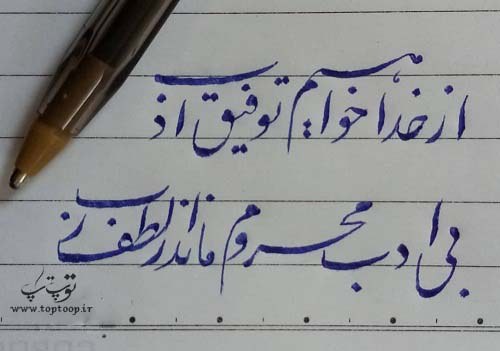 از خدا خواهیم توفیق ادب
بی ادب محروم ماند از لطف رب
توپ تاپ
www.toptoop.ir